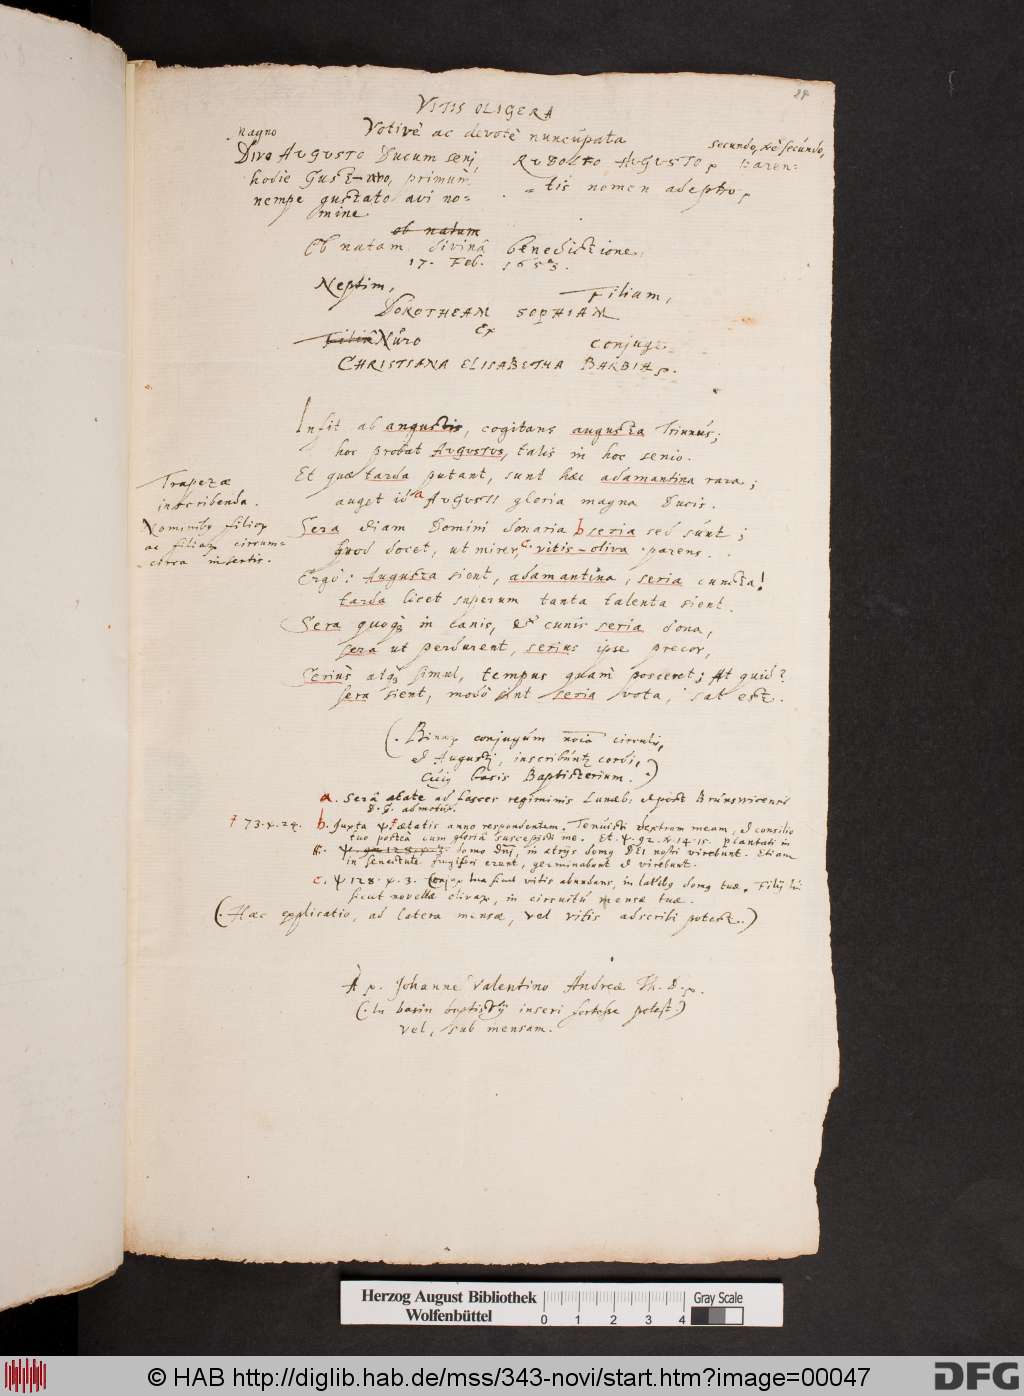 24
VITIS OLIGERA
Votivè ac devotè nuncupata
Magno
Divo AUGUSTO Ducum seni
hodie Gust-avo, primum
nempe gustato avi no=
mine.
secundo, nè secundo,
RUDOLFO AUGUSTO, paren-
tis nomen adepto,
ob natum
Ob natam divinâ benedictione,
17. Feb. 1653.
Neptim, Filiam,
DOROTHEAM SOPHIAM
Ex
Filia Nuro conjuge
CHRISTIANA ELISABETHA BARBIA.
Insit ab angustis, cogitans augusta Triunus;
hoc probat AUGUSTUS, talis in hoc senio.
Et quae tarda putant, sunt haec adamantina rara;
auget id a AUGUSTI gloria magna Ducis.
Trapezae
inscribenda.
Sera etiam Domini donaria b seria sed sunt;
Quod docet, ut mirer, c vitis-oliva parens.
Nominib9 filior
ac filiar circum=
circa insertis.
Ergò: Augusta sient, adamantina, seria cuncta!
tarda licet superum tanta talenta sient.
Sera quoq in canis, et cunis seria dona,
sera ut perdurent, serius ipse precor,
Serius atq simul, tempus quam posceret; At quid?
sera sient, modò sint seria vota, sat est.
(. Binar conjugum circulis,
et Augusti, inscribunt cordi,
Cui basis Baptisterium.)
a. Serâ aetate ad fasces regiminis Luneb. et post Brunsvicensis
D. G. admotus.
† 73. v. 24. b. Juxta ψ † aetatis anno respondentem. Tenuisti dextram meam, et consilio
tuo posteà cum gloriâ suscepisti me. Et ψ. 92. v. 14. 15. plantati in
ψ. 128. v. 3 domo Dnj, in atrijs dom9 DEI nostri virebunt. Etiam
in senectute frugiferi erunt, germinabunt et virebunt.
c. ψ 128. v. 3. Conjux tua sicut vitis abundans, in laterib9 dom9 tuae. Filij tui
sicut novellae olivar, in circuitu mensae tuae.
(. Haec explicatio, ad latera mensae, vel vitis adscribi potest.)
À Johanne Valentino Andreae Th. D.
(. In basin baptisterij inseri fortasse potest.)
vel, sub mensam.
Herzog August Bibliothek
Wolfenbüttel
0 1 2 3 4
Gray Scale
© HAB http://diglib.hab.de/mss/343-novi/start.htm?image=00047
DFG